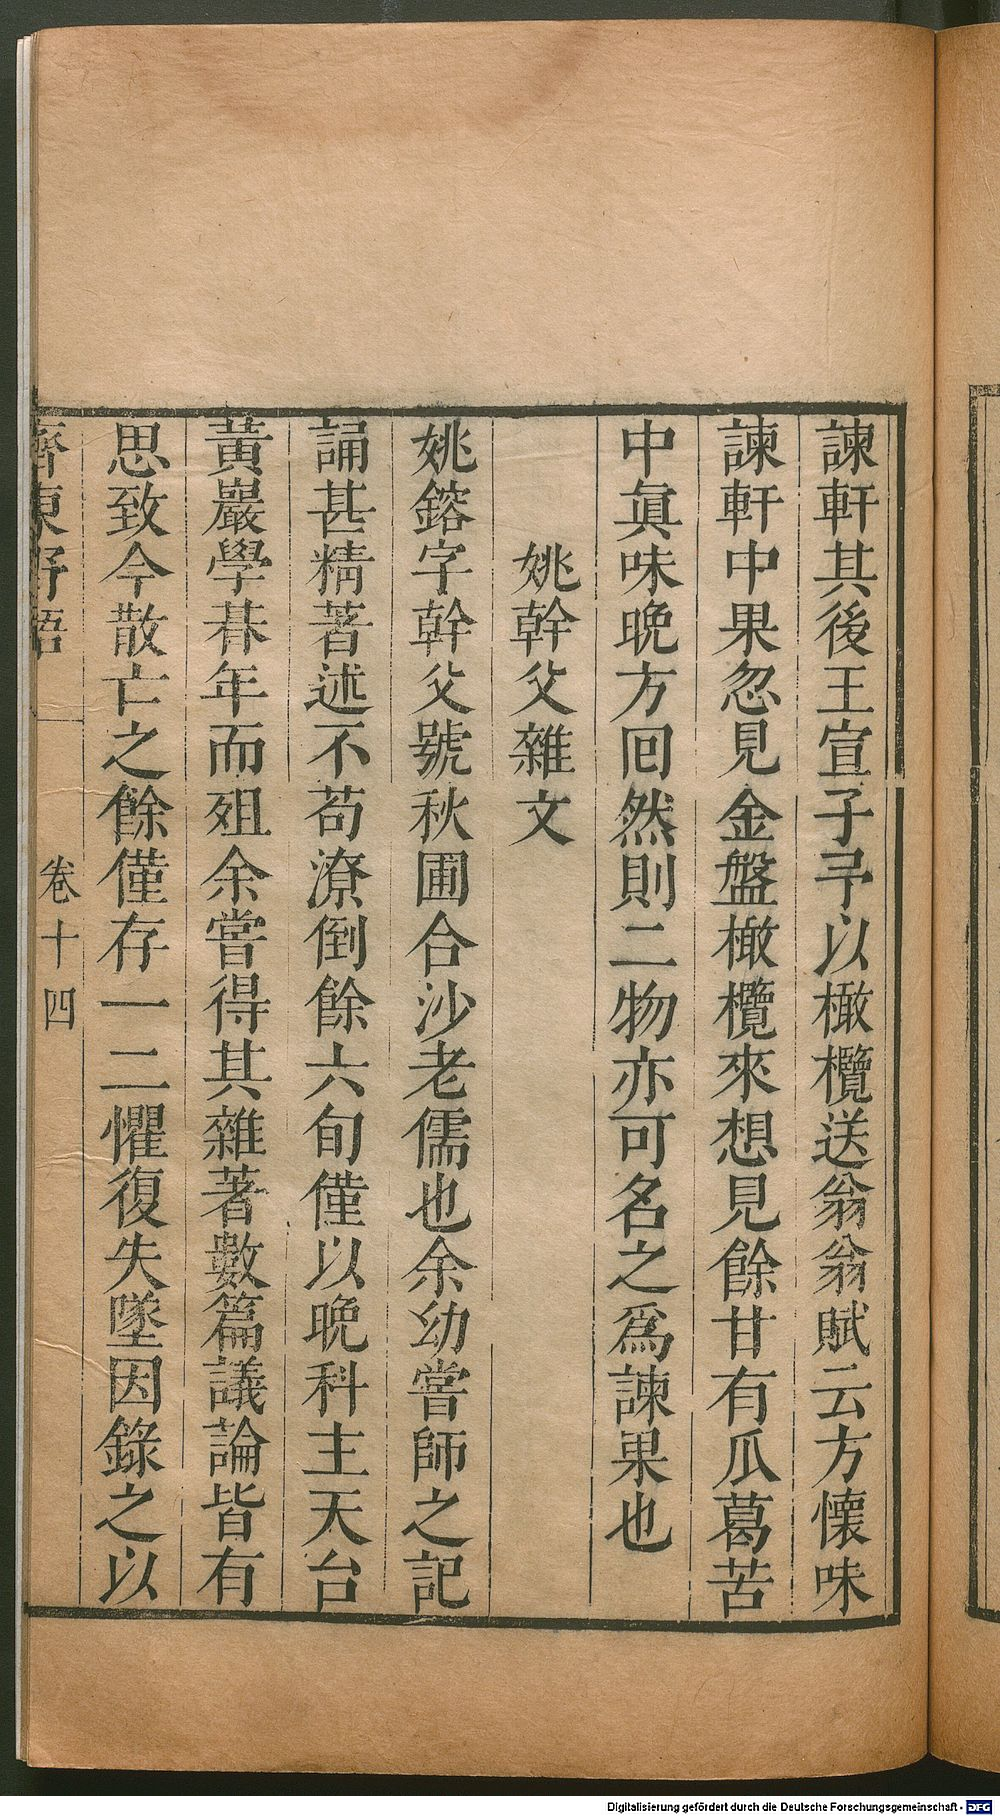 諫軒其後王宣子尋以橄欖送翁翁賦云方懷味
諫軒中果忽見金盤橄欖來想見餘甘有瓜葛苦
中眞味晩方回然則二物亦可名之爲諫果也
姚幹父雜文
姚鎔字幹父號秋圃合沙老儒也余幼嘗師之記
誦甚精著述不苟潦倒餘六旬僅以晩科主天台
黃巖學朞年而殂余嘗得其雜著數篇議論皆有
思致今散亡之餘僅存一二懼復失墜因錄之以
齊東野語 卷十四
Digitalisierung gefördert durch die Deutsche Forschungsgemeinschaft - DFG